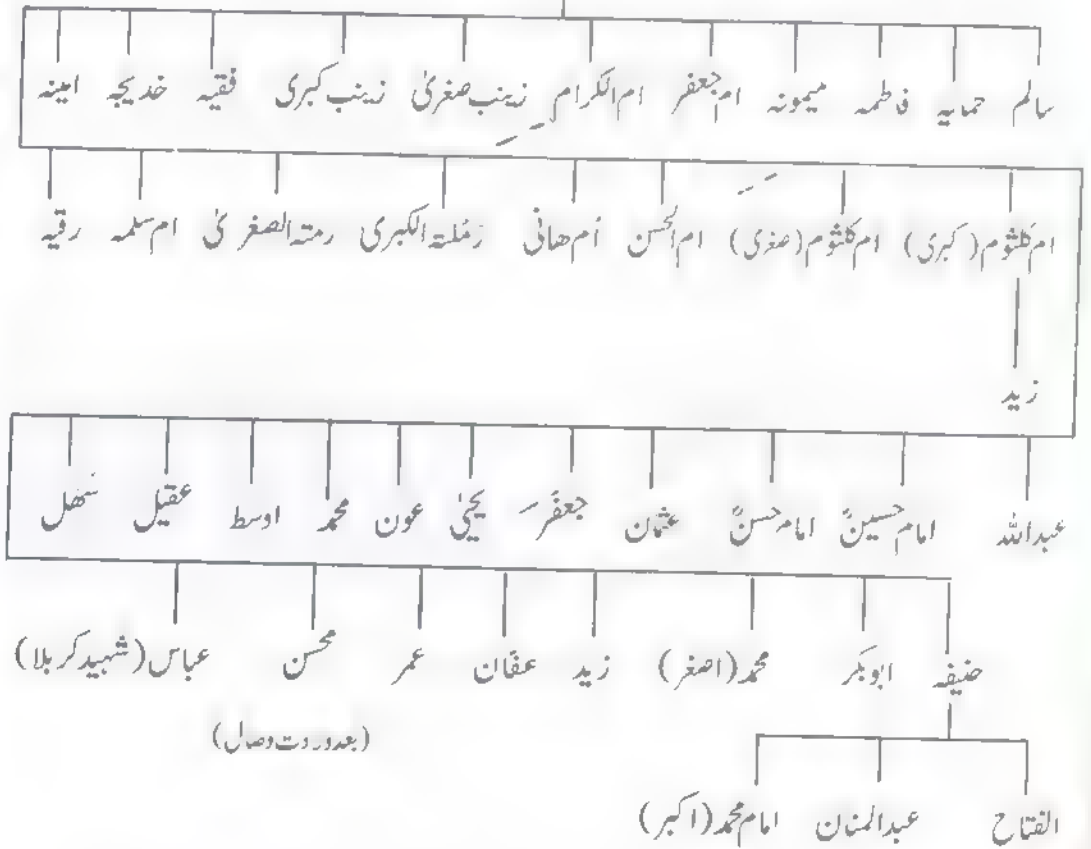 سالم حمایہ فاطمہ میمونہ ام جعفر ام الکرام زینب صغریٰ زینب کبری فقیہ خدیجہ امینہ
ام کلثوم (کبری) ام کلثوم (صغری) ام الحسن ام ھانی رملتہ الکبری رمتہ الصغریٰ ام سلمہ رقیہ
زید
عبداللہ امام حسینؑ امام حسنؑ عثمان جعفر یحییٰ عون محمد اوسط عقیل سھل
حنیفہ ابوبکر محمد (اصغر) زید عفان عمر محسن عباس (شہید کربلا)
(بعد وصال)
الفتاح عبدالمنان امام محمد (اکبر)